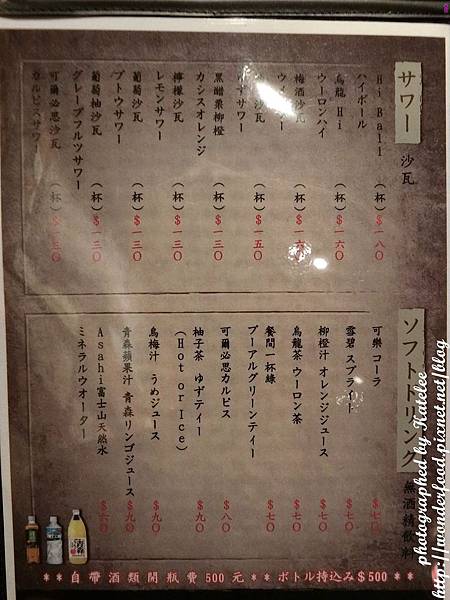 サワー 沙瓦
Hi Ball
ハイボール (杯) $一八〇
烏龍 Hi
ウーロンハイ (杯) $一六〇
梅酒沙瓦
(杯) $一六〇
沙瓦
サワー (杯) $一五〇
黑醋栗柳橙
カシスオレンジ (杯) $一三〇
檸檬沙瓦
レモンサワー (杯) $一三〇
葡萄沙瓦
ブトウサワー (杯) $一三〇
葡萄柚沙瓦
グレープフルツサワー (杯) $一三〇
可爾必思沙瓦
カルピスサワー (杯) $一三〇
ソフトドリンク 無酒精飲料
可樂 コーラ $七〇
雪碧 スプライト $七〇
柳橙汁 オレンジジュース $七〇
烏龍茶 ウーロン茶 $七〇
餐間一杯綠
プーアルグリーンティー $七〇
可爾必思カルピス $八〇
柚子茶 ゆずティー
(Hot or Ice) $九〇
烏梅汁 うめジュース $九〇
青森蘋果汁 青森リンゴジュース $九〇
Asahi富士山天然水
ミネラルウオーター $六〇
**自帶酒類開瓶費500元**ボトル持込み$500**
photographed by Katelee
http://wonderfood.pixnet.net/blog